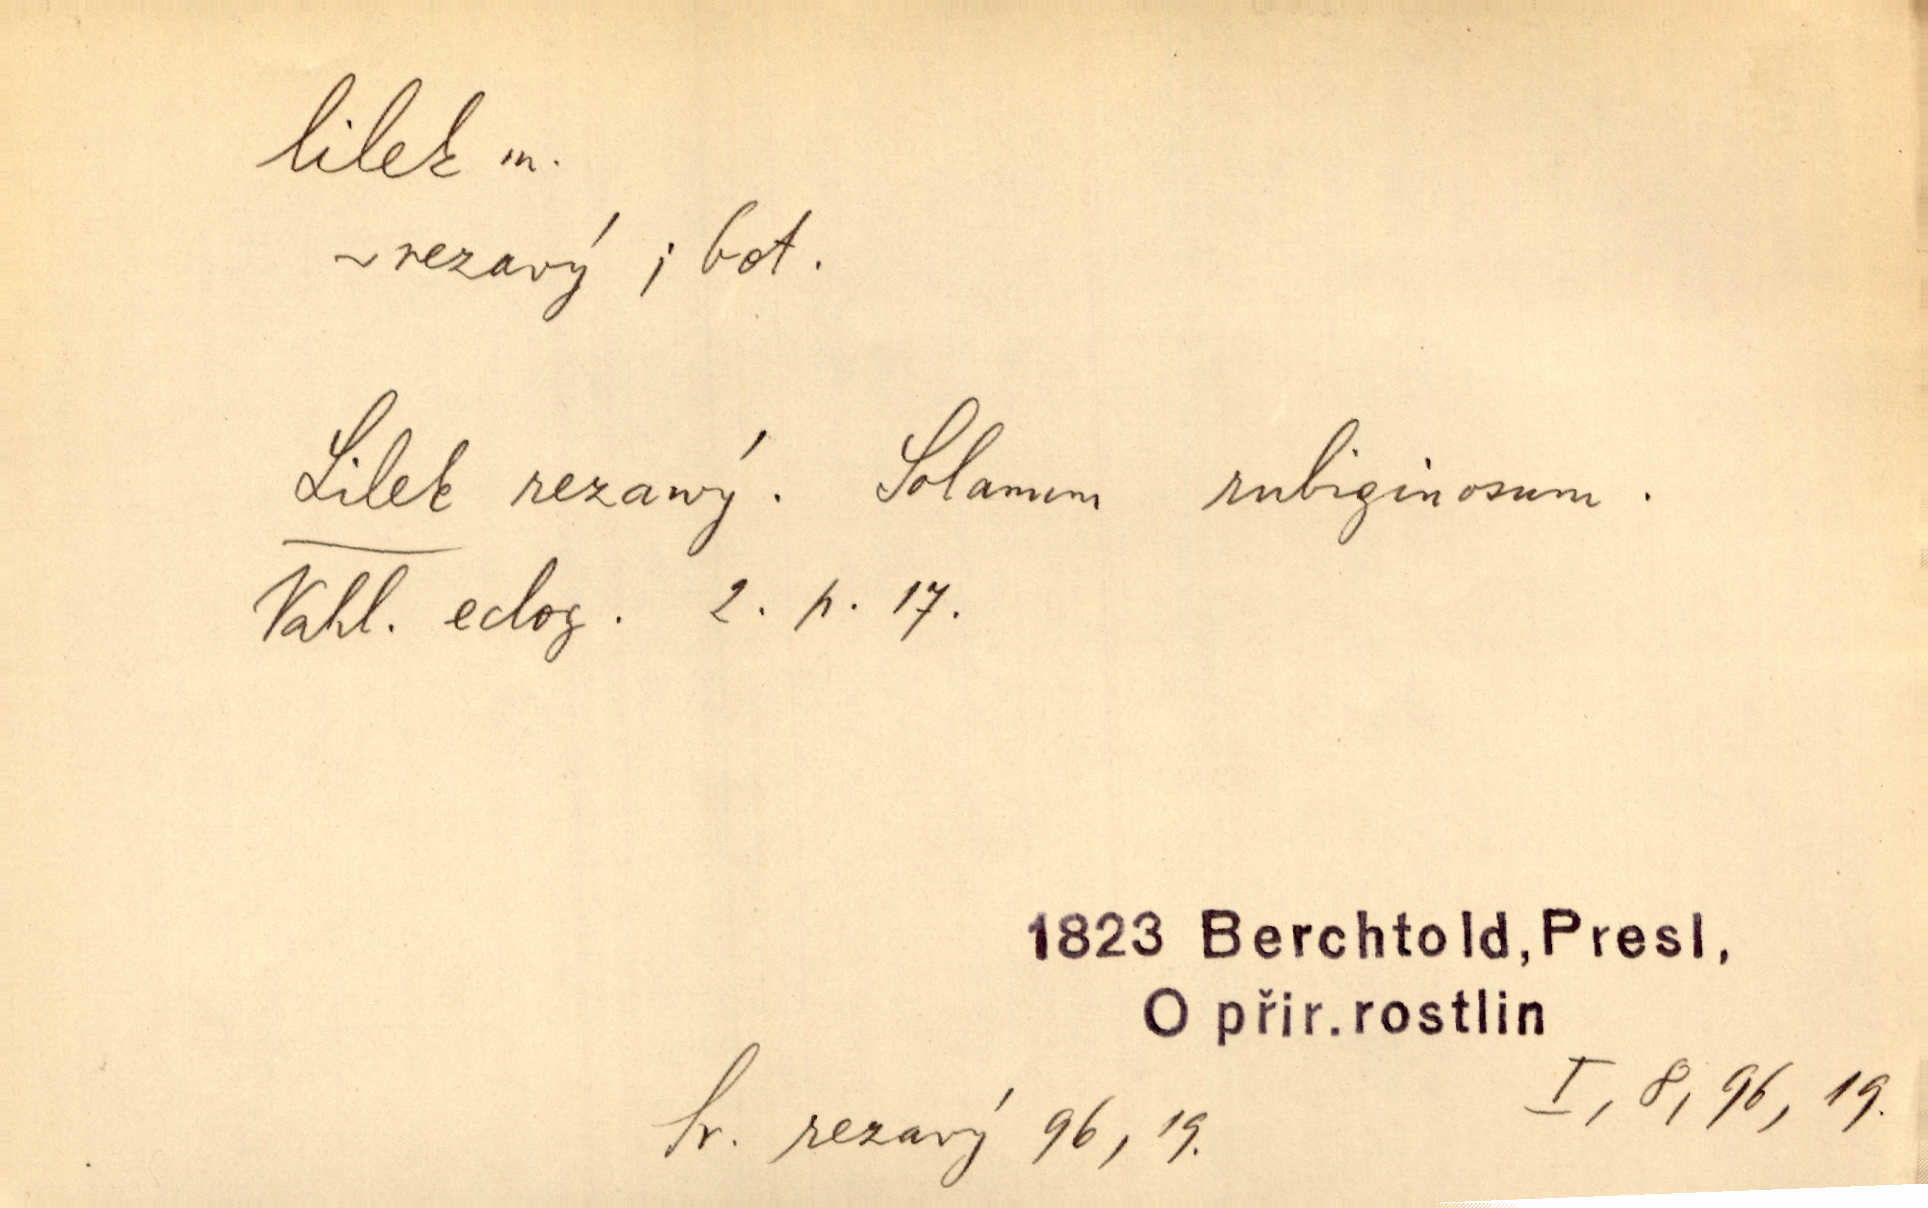 lilek m.
~ rezavý ; bot.
Lilek rezawý. Solanum rubiginosum.
Vahl. eclog. 2. p. 17.
1823 Berchtold, Presl,
O přir. rostlin
I, 8, 96, 19.
Sr. rezavý 96, 19.